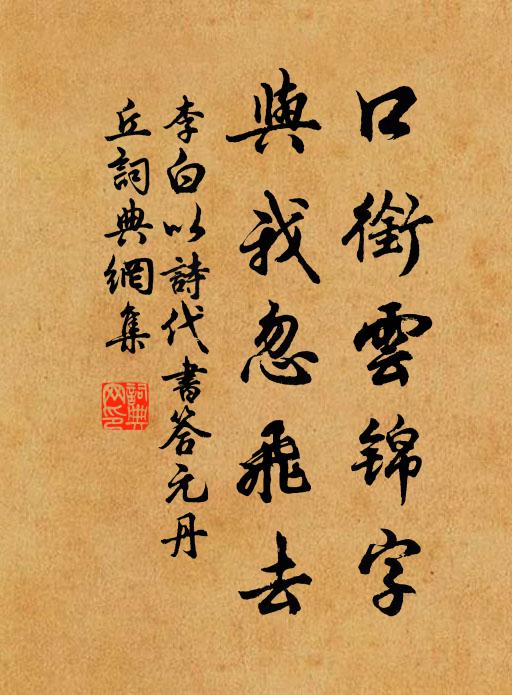 口銜雲錦字
與我忽飛去
李白以詩代書答元丹
丘詞典網集
詞典
网印